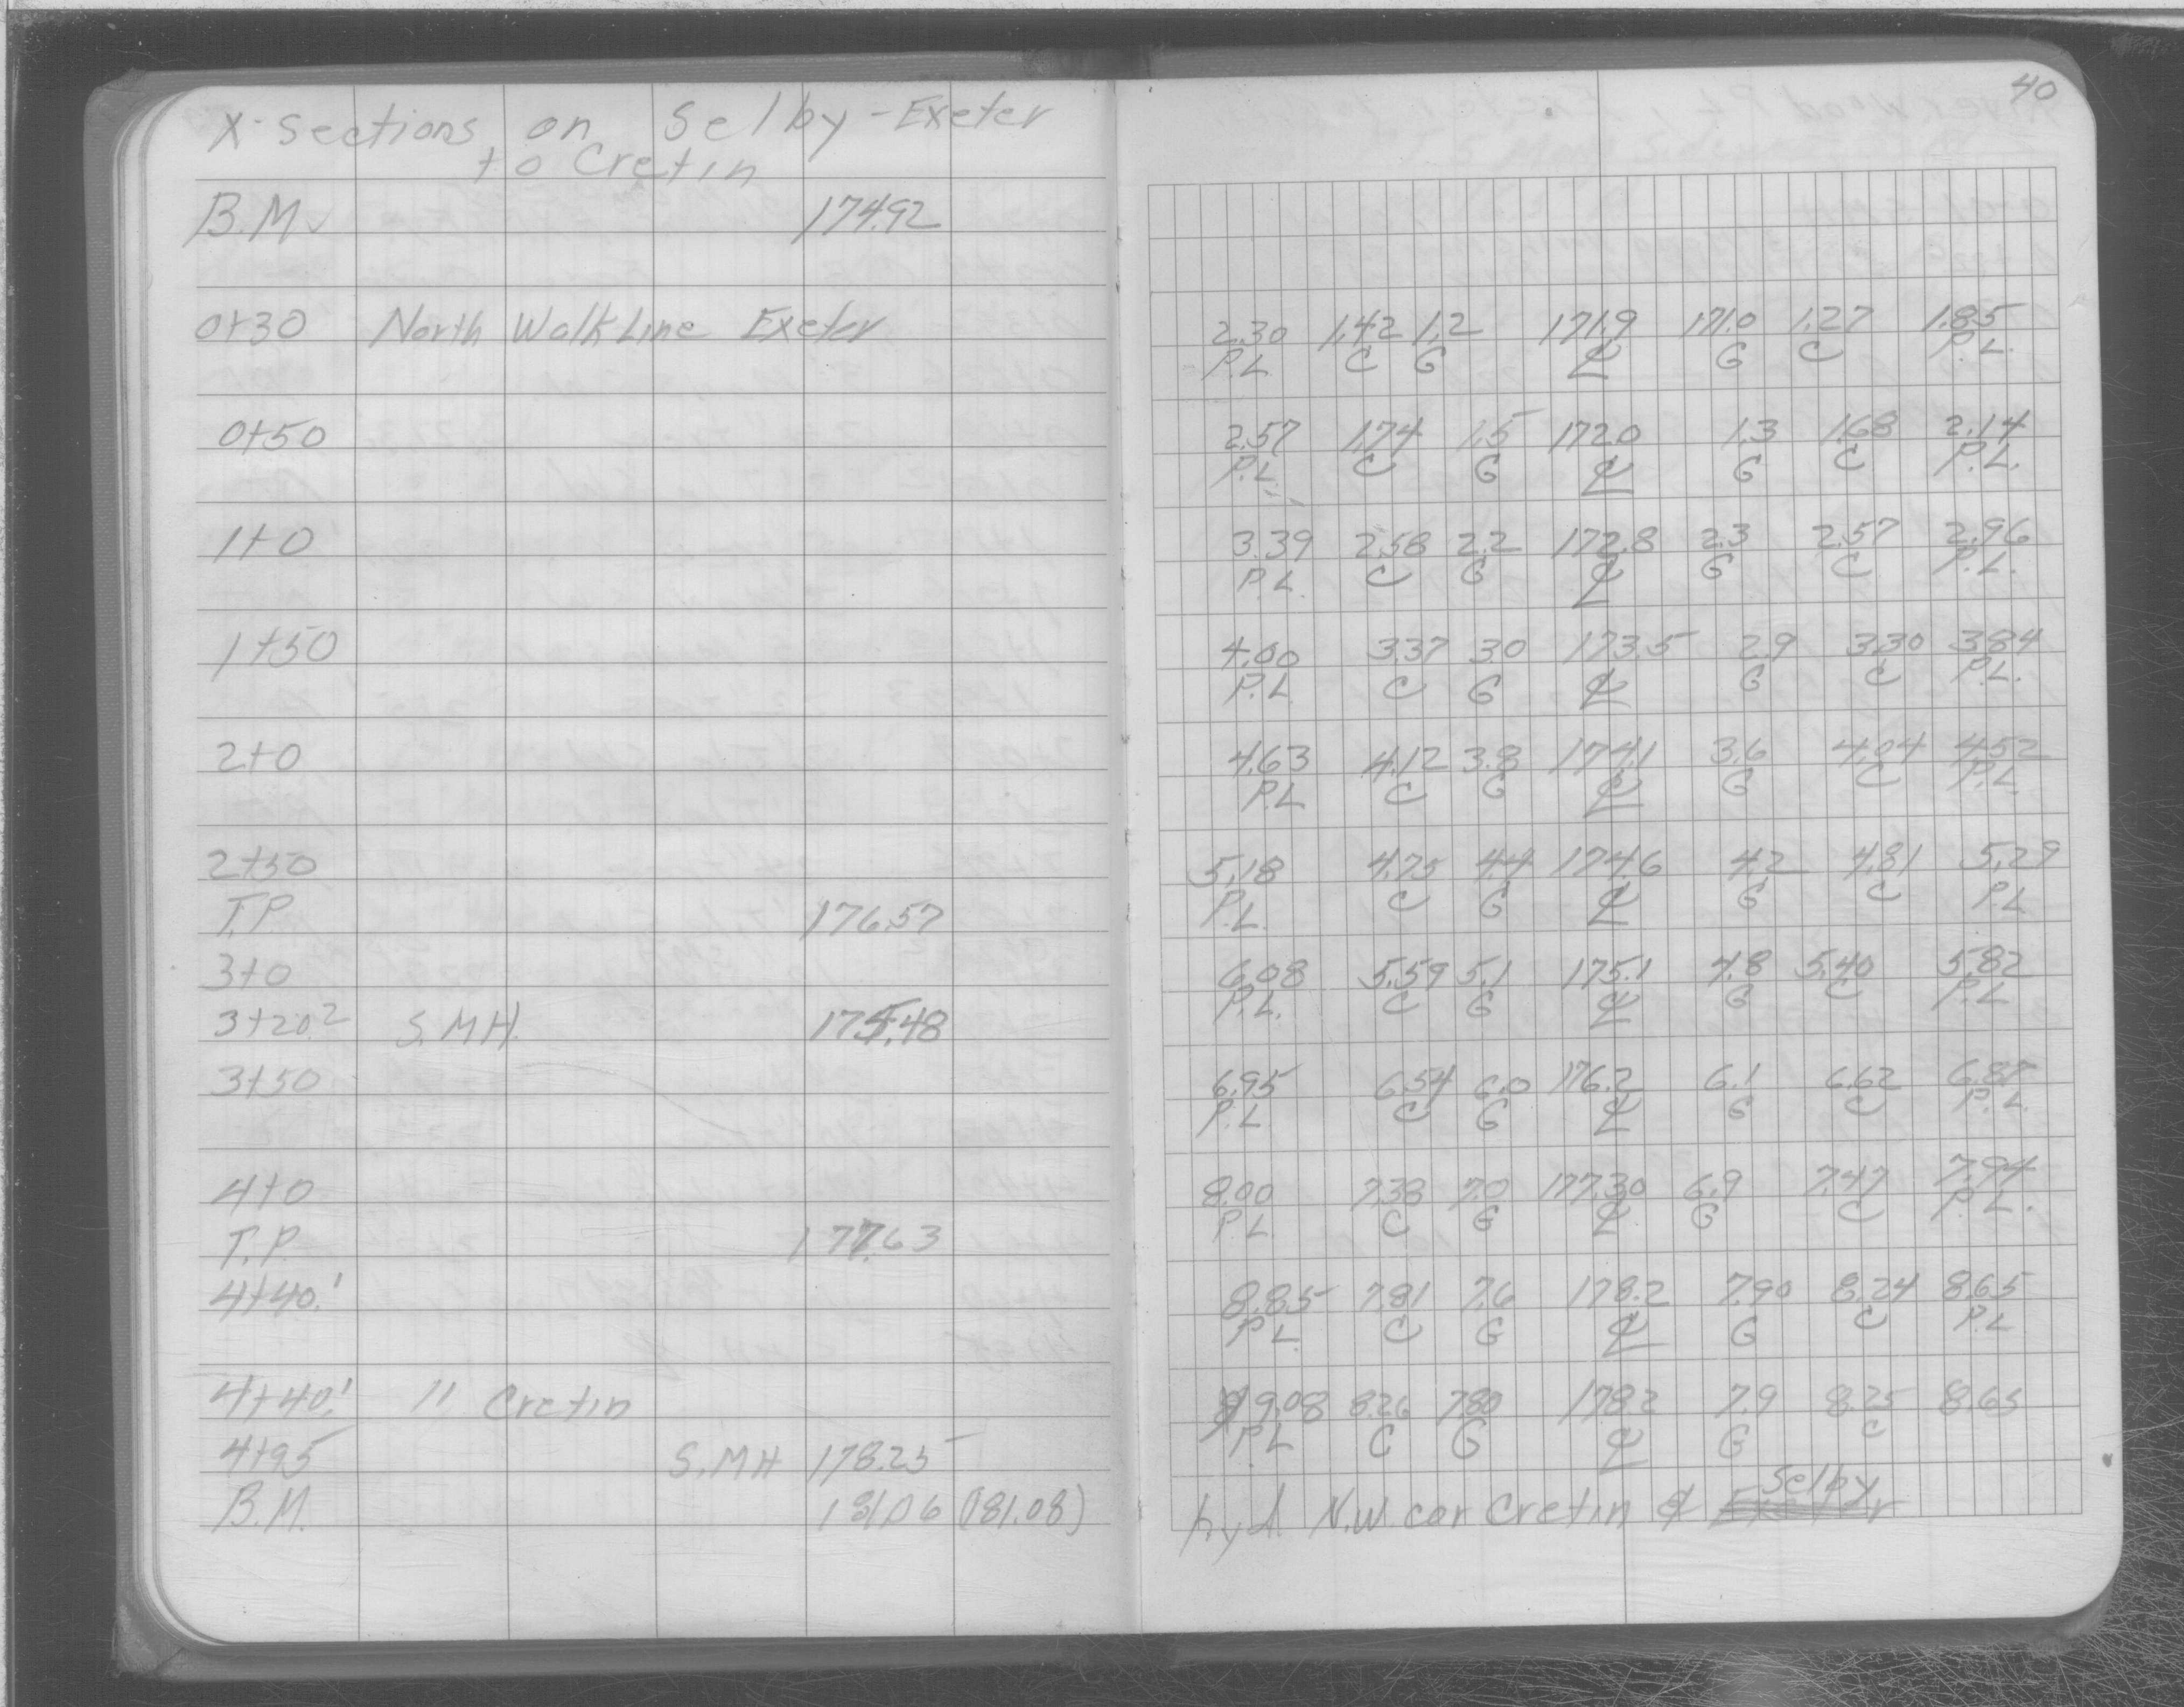 X-Sections on Selby-Exeter
to Cretin
B.M. 174.92
0+30 North Walk Line Exeter
0+50
1+0
1+50
2+0
2+50
T.P. 176.57
3+0
3+20.2 S.M.H. 175.48
3+50
4+0
T.P. 177.63
4+40.1
4+40.1 " Cretin
4+95 S.MH 178.25
B.M. 181.06 (181.08)
40
2.30 1.42 1.2 171.9 171.0 1.27 1.85
P.L. C G ℄ G C P.L.
2.57 1.74 1.5 172.0 1.3 1.68 2.14
P.L. C G ℄ G C P.L.
3.39 2.58 2.2 172.8 2.3 2.57 2.96
P.L. C G ℄ G C P.L.
4.00 3.37 3.0 173.5 2.9 3.30 3.84
P.L. C G ℄ G C P.L.
4.63 4.12 3.8 174.1 3.6 4.04 4.52
P.L C G ℄ G C P.L.
5.18 4.75 4.4 174.6 4.2 4.81 5.29
P.L. C G ℄ G C P.L
6.08 5.59 5.1 175.1 4.8 5.40 5.82
P.L. C G ℄ G C P.L
6.95 6.54 6.0 176.2 6.1 6.62 6.87
P.L C G ℄ G C P.L.
8.00 7.38 7.0 177.30 6.9 7.47 7.94
P.L. C G ℄ G C P.L.
8.85 7.81 7.6 178.2 7.90 8.24 8.65
P.L. C G ℄ G C P.L
9.08 8.26 7.80 178.2 7.9 8.25 8.65
P.L C G ℄ G C
Selby
hyd. N.W. cor Cretin & Exeter